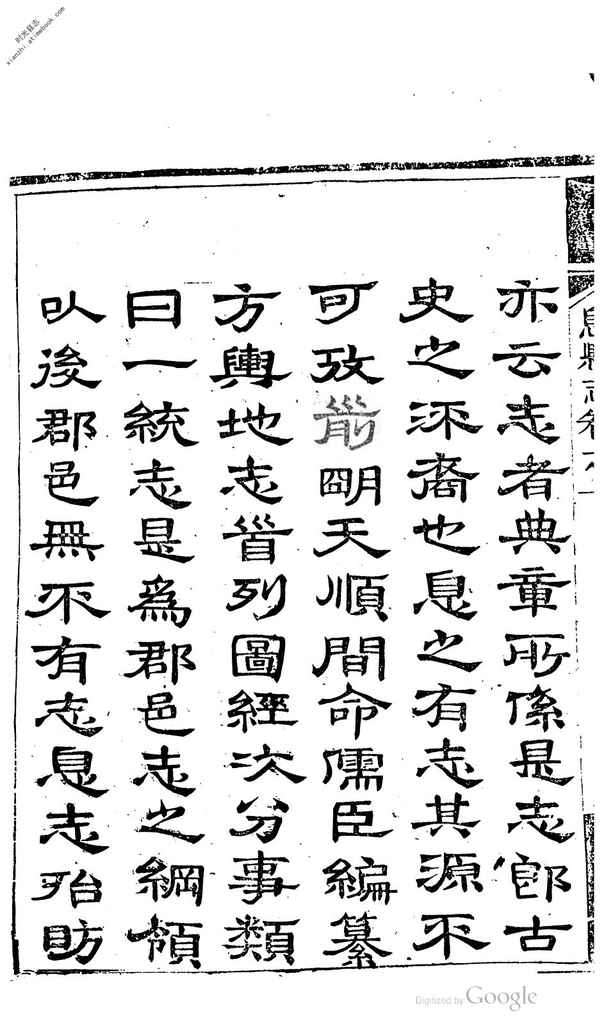 亦云志者典章所係是志郎古
史之沠裔也息之有志其源不
可攷前明天順間命儒臣編纂
方輿地志首列圖經次分事類
曰一統志是為郡邑志之綱領
以後郡邑無不有志息志殆昉
息縣志卷
时光县志
xianzhi.atimebook.com
Digitized by Google